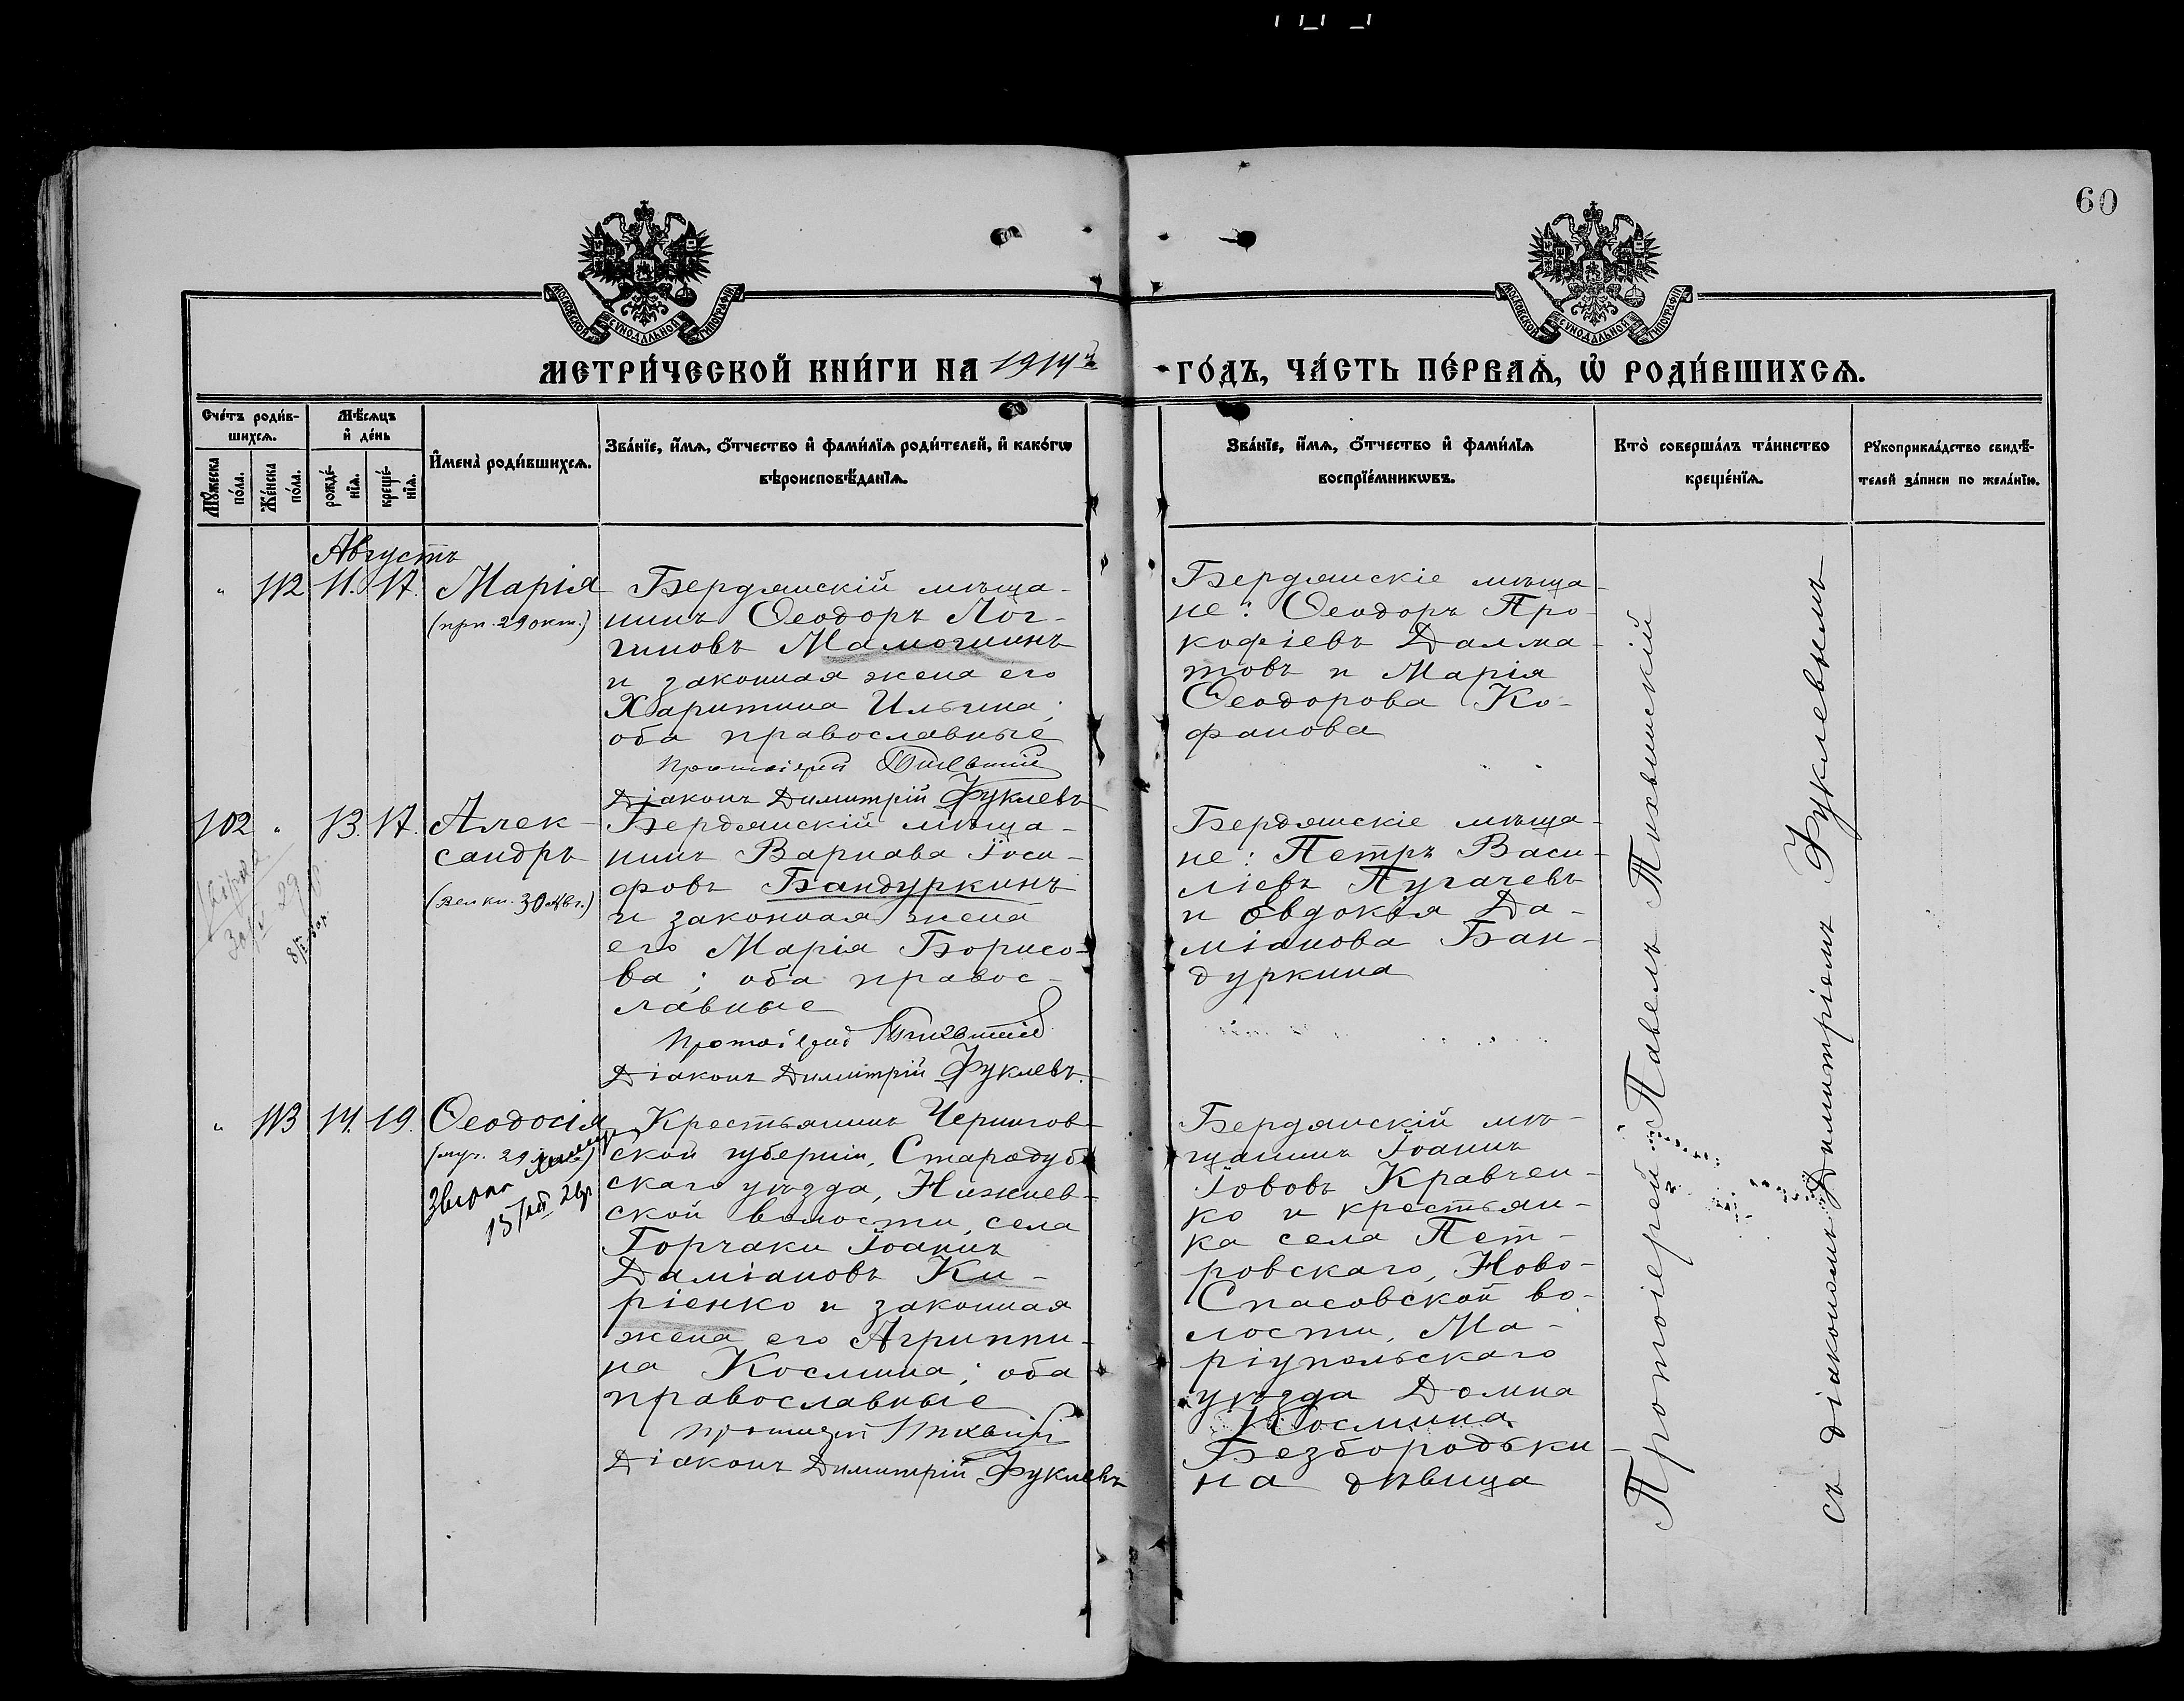 60
МОСКОВСКОЙ СѴНОДАЛЬНОЙ ТИПОГРАФІИ
МОСКОВСКОЙ СѴНОДАЛЬНОЙ ТИПОГРАФІИ
МЕТРИ́ЧЕСКОЙ КНИ́ГИ НА 1914й ГО́ДЪ, ЧА́СТЬ ПЕ́РВАѦ, Ѡ РОДИ́ВШИХСѦ.
Сче́тъ роди́в-
шихсѧ.
Мꙋ́жеска по́ла.
Же́нска по́ла.
Мѣ́сѧцъ
и де́нь
рожде́-
нїѧ.
креще́-
нїѧ.
Имена̀ роди́вшихсѧ.
Зва́нїе, и́мѧ, о́тчество и фами́лїѧ роди́телей, и како́гѡ
вѣроисповѣ́данїѧ.
Зва́нїе, и́мѧ, о́тчество и фами́лїѧ
воспрїе́мникѡвъ.
Кто̀ соверша́лъ та́инство
креще́нїѧ.
Рꙋкоприкла́дство свидѣ́-
телей за́писи по жела́нїю.
Августъ
" 112 11. 17. Марія
(прп. 29 окт.)
Бердянскій мѣща-
нинъ Ѳеодоръ Лог-
гиновъ Мамошинъ
и законная жена его
Харитина Ильина;
оба православные
Протоіерей Тихвинскій
Діаконъ Димитрій Фуклевъ
Бердянскіе мѣща-
не: Ѳеодоръ Про-
кофіевъ Далма-
товъ и Марія
Ѳеодорова Ко-
фанова
102 " 13. 17. Алек-
сандръ
(вел кн. 30 Авг.)
Бердянскій мѣща-
нинъ Варнава Іоси-
фовъ Бандуркинъ
и законная жена
его Марія Борисо-
ва; оба правос-
лавные
Протоіерей Тихвинскій
Діаконъ Димитрій Фуклевъ.
Бердянскіе мѣща-
не: Петръ Васи-
ліевъ Пугачевъ
и Евдокія Да-
міанова Бан-
дуркина
" 113 14. 19. Ѳеодосія
(муч. 29
Крестьянинъ Чернигов-
ской губерніи, Стародуб-
скаго уѣзда, Нижнев-
ской волости, села
Горчаки Іоаннъ
Даміановъ Ки-
ріенко и законная
жена его Агриппи-
на Космина; оба
православные
Протоіерей Тихвинскій
Діаконъ Димитрій Фуклевъ
Бердянскій мѣ-
щанинъ Іоаннъ
Іововъ Кравчен-
ко и крестьян-
ка села Пет-
ровскаго, Ново-
Спасовской во-
лости, Ма-
ріупольскаго
уѣзда Домна
Космина
Безбородьки-
на дѣвица
Протоіерей Павелъ Тихвинскій
съ діакономъ Димитріемъ Фуклевымъ